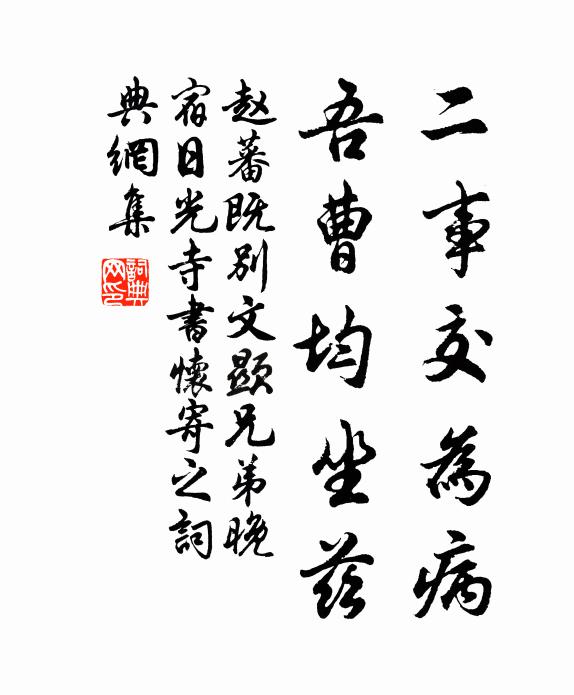 二事交為病
吾曹均坐茲
赵蕃既别文顯兄弟晚
宿日光寺書懷寄之詞
典網集
詞典网印